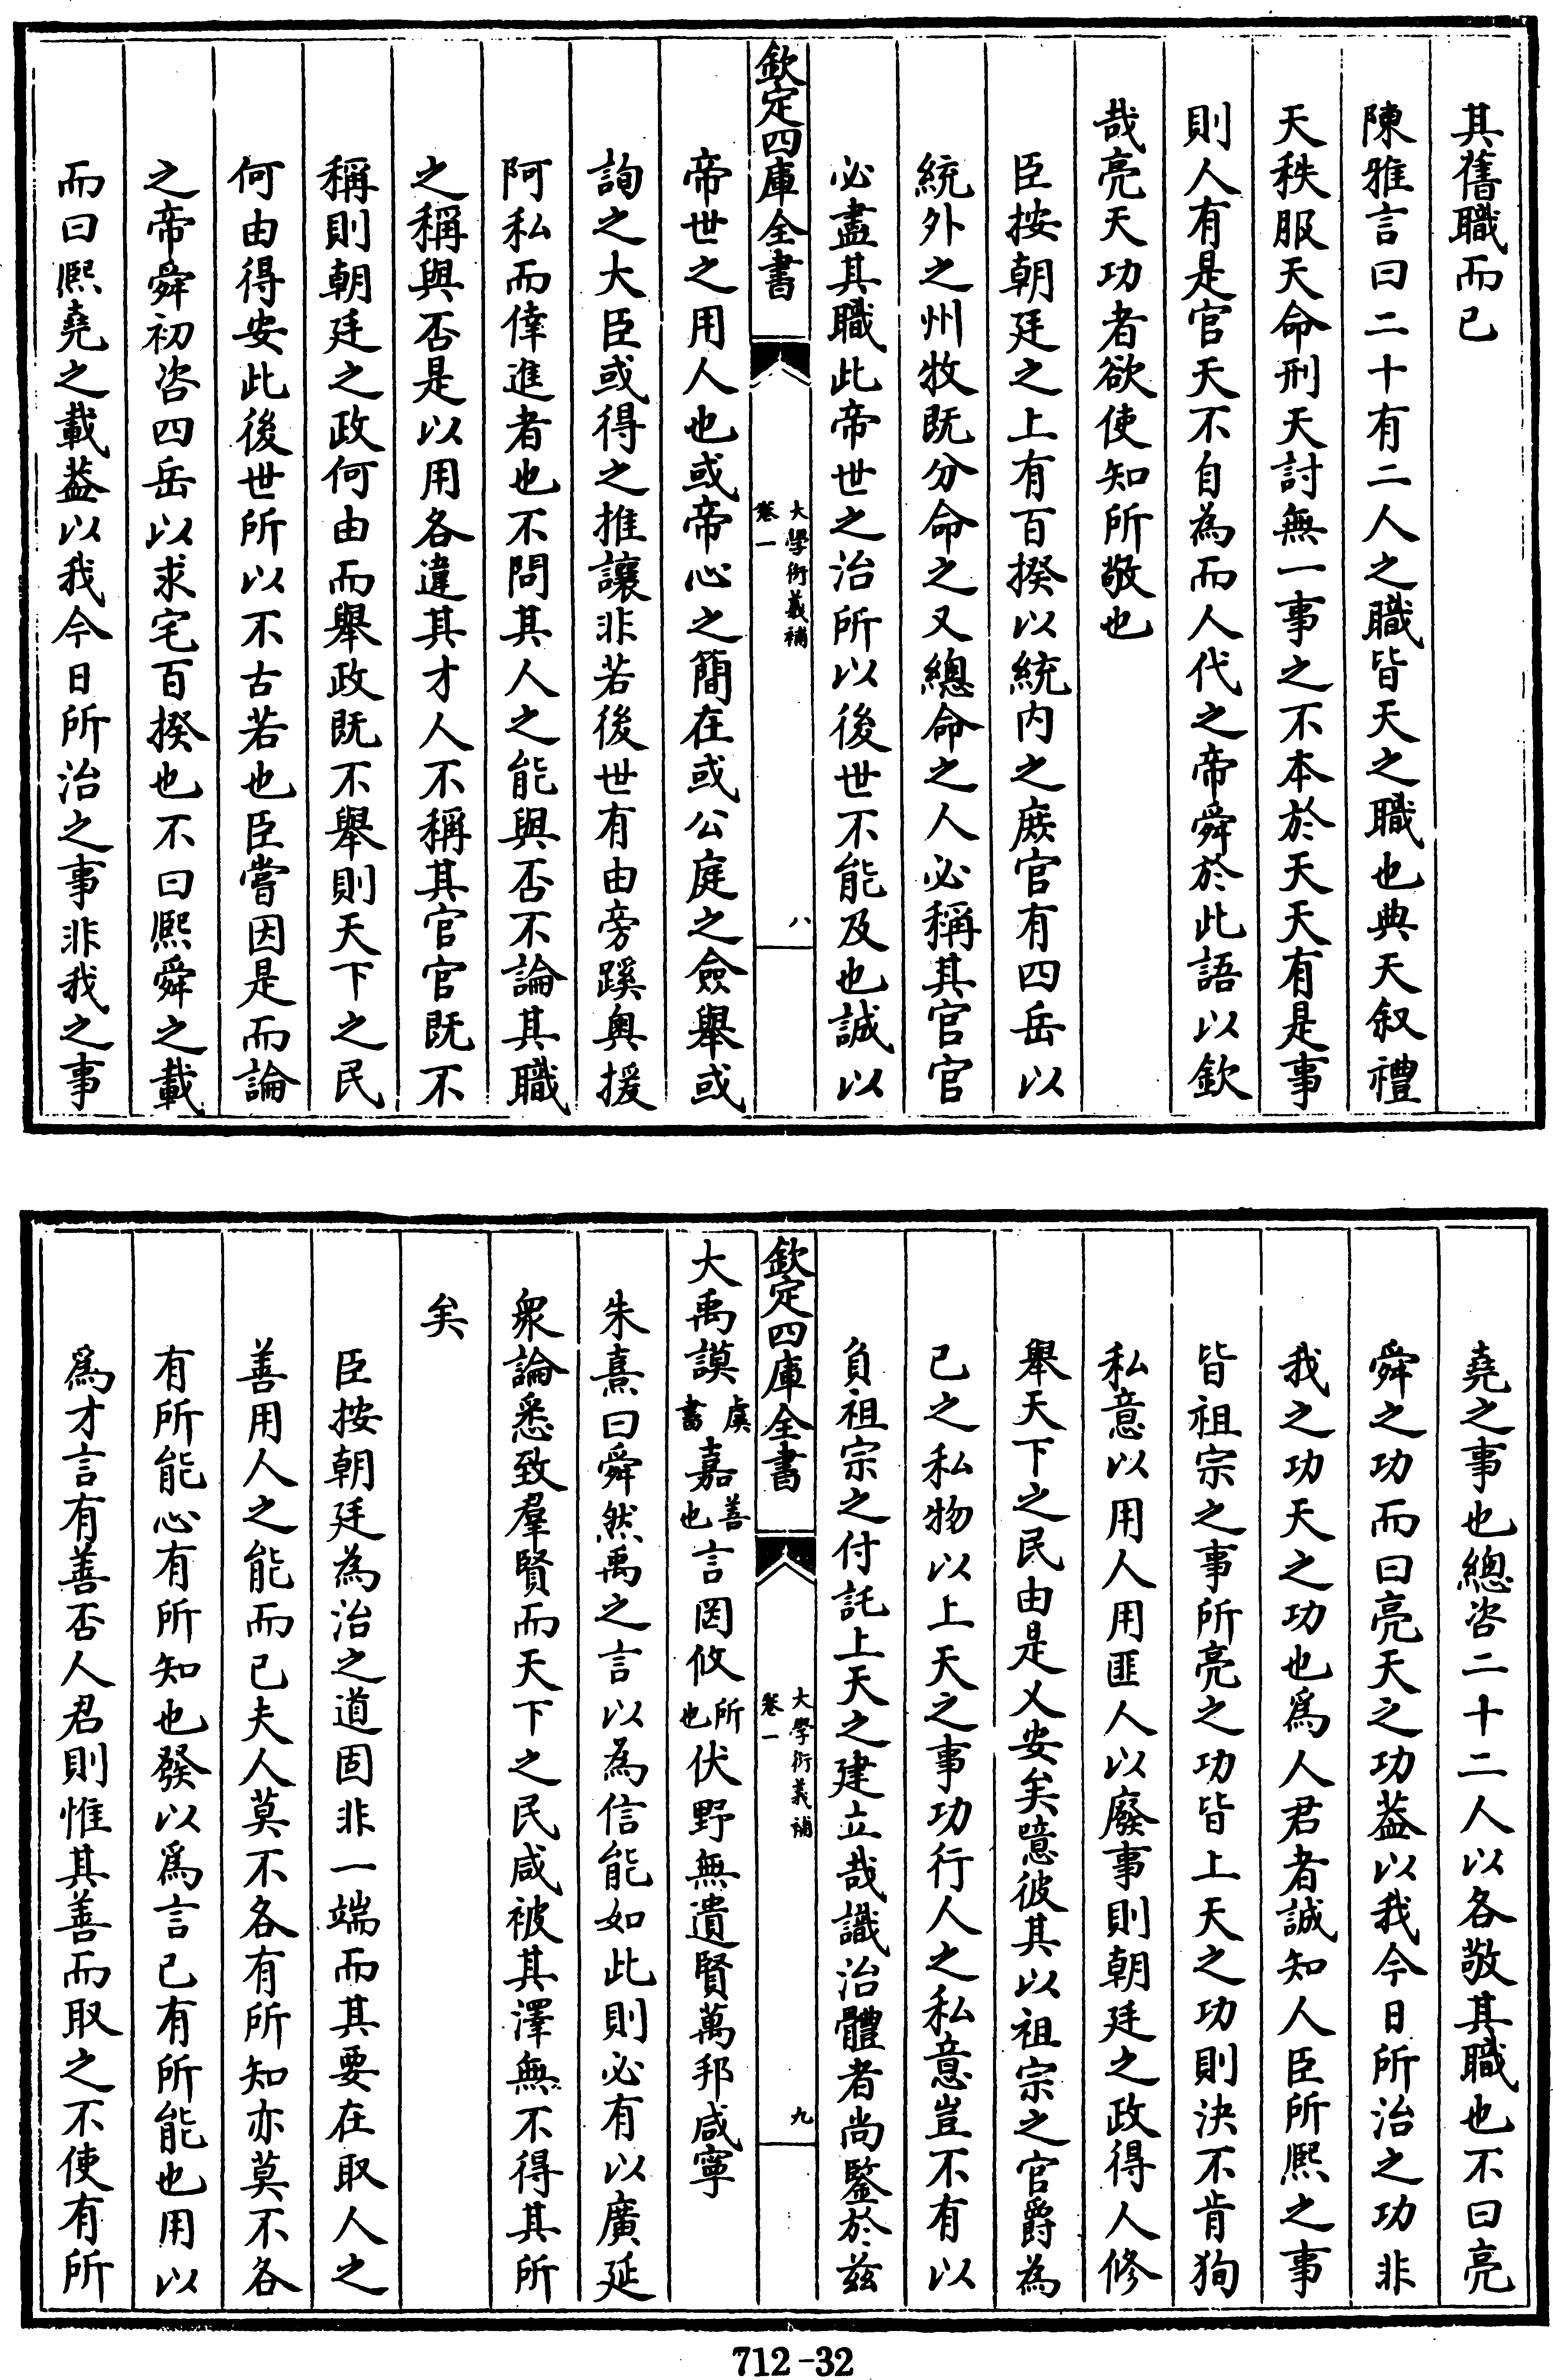 其舊職而已
陳雅言曰二十有二人之職皆天之職也典天叙禮
天秩服天命刑天討無一事之不本於天天有是事
則人有是官天不自為而人代之帝舜於此語以欽
哉亮天功者欲使知所敬也
臣按朝廷之上有百揆以統内之庶官有四岳以
統外之州牧既分命之又總命之人必稱其官官
必盡其職此帝世之治所以後世不能及也誠以
欽定四庫全書
大學衍義補
卷一
八
帝世之用人也或帝心之簡在或公庭之僉舉或
詢之大臣或得之推讓非若後世有由旁蹊奥援
阿私而倖進者也不問其人之能與否不論其職
之稱與否是以用各違其才人不稱其官官既不
稱則朝廷之政何由而舉政既不舉則天下之民
何由得安此後世所以不古若也臣嘗因是而論
之帝舜初咨四岳以求宅百揆也不曰熙舜之載
而曰熙堯之載葢以我今日所治之事非我之事
堯之事也總咨二十二人以各敬其職也不曰亮
舜之功而曰亮天之功葢以我今日所治之功非
我之功天之功也爲人君者誠知人臣所熙之事
皆祖宗之事所亮之功皆上天之功則決不肯狥
私意以用人用匪人以廢事則朝廷之政得人修
舉天下之民由是乂安矣噫彼其以祖宗之官爵為
已之私物以上天之事功行人之私意豈不有以
負祖宗之付託上天之建立哉識治體者尚鑒於兹
欽定四庫全書
大學衍義補
卷一
九
大禹謨虞書嘉善也言罔攸所也伏野無遺賢萬邦咸寧
朱熹曰舜然禹之言以為信能如此則必有以廣延
衆論悉致羣賢而天下之民咸被其澤無不得其所
矣
臣按朝廷為治之道固非一端而其要在取人之
善用人之能而已夫人莫不各有所知亦莫不各
有所能心有所知也發以爲言已有所能也用以
爲才言有善否人君則惟其善而取之不使有所
712-32